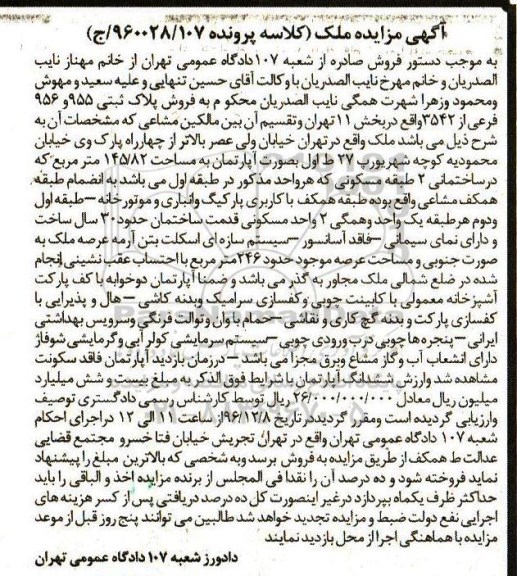 آگهی مزایده ملک (کلاسه پرونده ۹۶۰۰۲۸/۱۰۷/ج)
به موجب دستور فروش صادره از شعبه ۱۰۷دادگاه عمومی تهران از خانم مهناز نایب
الصدریان و خانم مهرخ نایب الصدریان با وکالت آقای حسین تنهایی و علیه سعید و مهوش
ومحمود وزهرا شهرت همگی نایب الصدریان محکوم به فروش پلاک ثبتی ۹۵۵و ۹۵۶
فرعی از ۳۵۴۲واقع دربخش ۱۱تهران وتقسیم آن بین مالکین مشاعی که مشخصات آن به
شرح ذیل می باشد ملک واقع در تهران خیابان ولی عصر بالاتر از چهارراه پارک وی خیابان
محمودیه کوچه شهریور پ۲۷ ط اول بصورت آپارتمان به مساحت ۱۴۵/۸۲ متر مربع که
درساختمانی ۲ طبقه مسکونی که هرواحد مذکور در طبقه اول می باشد به انضمام طبقه
همکف مشاعی واقع بوده طبقه همکف با کاربری پارکینگ وانباری و موتورخانه –طبقه اول
ودوم هرطبقه یک واحد وهمگی ۲ واحد مسکونی قدمت ساختمان حدود۳۰ سال ساخت
و دارای نمای سیمانی –فاقد آسانسور –سیستم سازه ای اسکلت بتن آرمه عرصه ملک به
صورت جنوبی و مساحت عرصه موجود حدود ۲۴۶متر مربع با احتساب عقب نشینی انجام
شده در ضلع شمالی ملک مجاور به گذر می باشد و ضمنا آپارتمان دوخوابه با کف پارکت
آشپزخانه معمولی با کابینت چوبی وکفسازی سرامیک وبدنه کاشی –هال و پذیرایی با
کفسازی پارکت و بدنه گچ کاری و نقاشی –حمام با وان وتوالت فرنگی وسرویس بهداشتی
ایرانی –پنجره ها چوبی درب ورودی چوبی –سیستم سرمایشی کولر آبی وگرمایشی شوفاژ
دارای انشعاب آب و گاز مشاع وبرق مجزا می باشد –درزمان بازدید آپارتمان فاقد سکونت
مشاهده شد وارزش ششدانگ آپارتمان با شرایط فوق الذکر به مبلغ بیست و شش میلیارد
میلیون ریال معادل ۲۶/۰۰۰/۰۰۰/۰۰۰ ریال توسط کارشناس رسمی دادگستری توصیف
وارزیابی گردیده است ومقرر گردیددر تاریخ ۹۶/۱۲/۸از ساعت ۱۱ الی ۱۲ دراجرای احکام
شعبه ۱۰۷ دادگاه عمومی تهران واقع در تهران تجریش خیابان فنا خسرو مجتمع قضایی
عدالت ط همکف از طریق مزایده به فروش برسد وبه شخصی که بالاترین مبلغ را پیشنهاد
نماید فروخته شود و ده درصد آن را نقدا فی المجلس از برنده مزایده اخذ و الباقی را باید
حداکثر ظرف یکماه بپردازد درغیر اینصورت کل ده درصد دریافتی پس از کسر هزینه های
اجرایی نفع دولت ضبط و مزایده تجدید خواهد شد طالبین می توانند پنج روز قبل از موعد
مزایده با هماهنگی اجرا از محل بازدید نمایند
دادورز شعبه ۱۰۷ دادگاه عمومی تهران